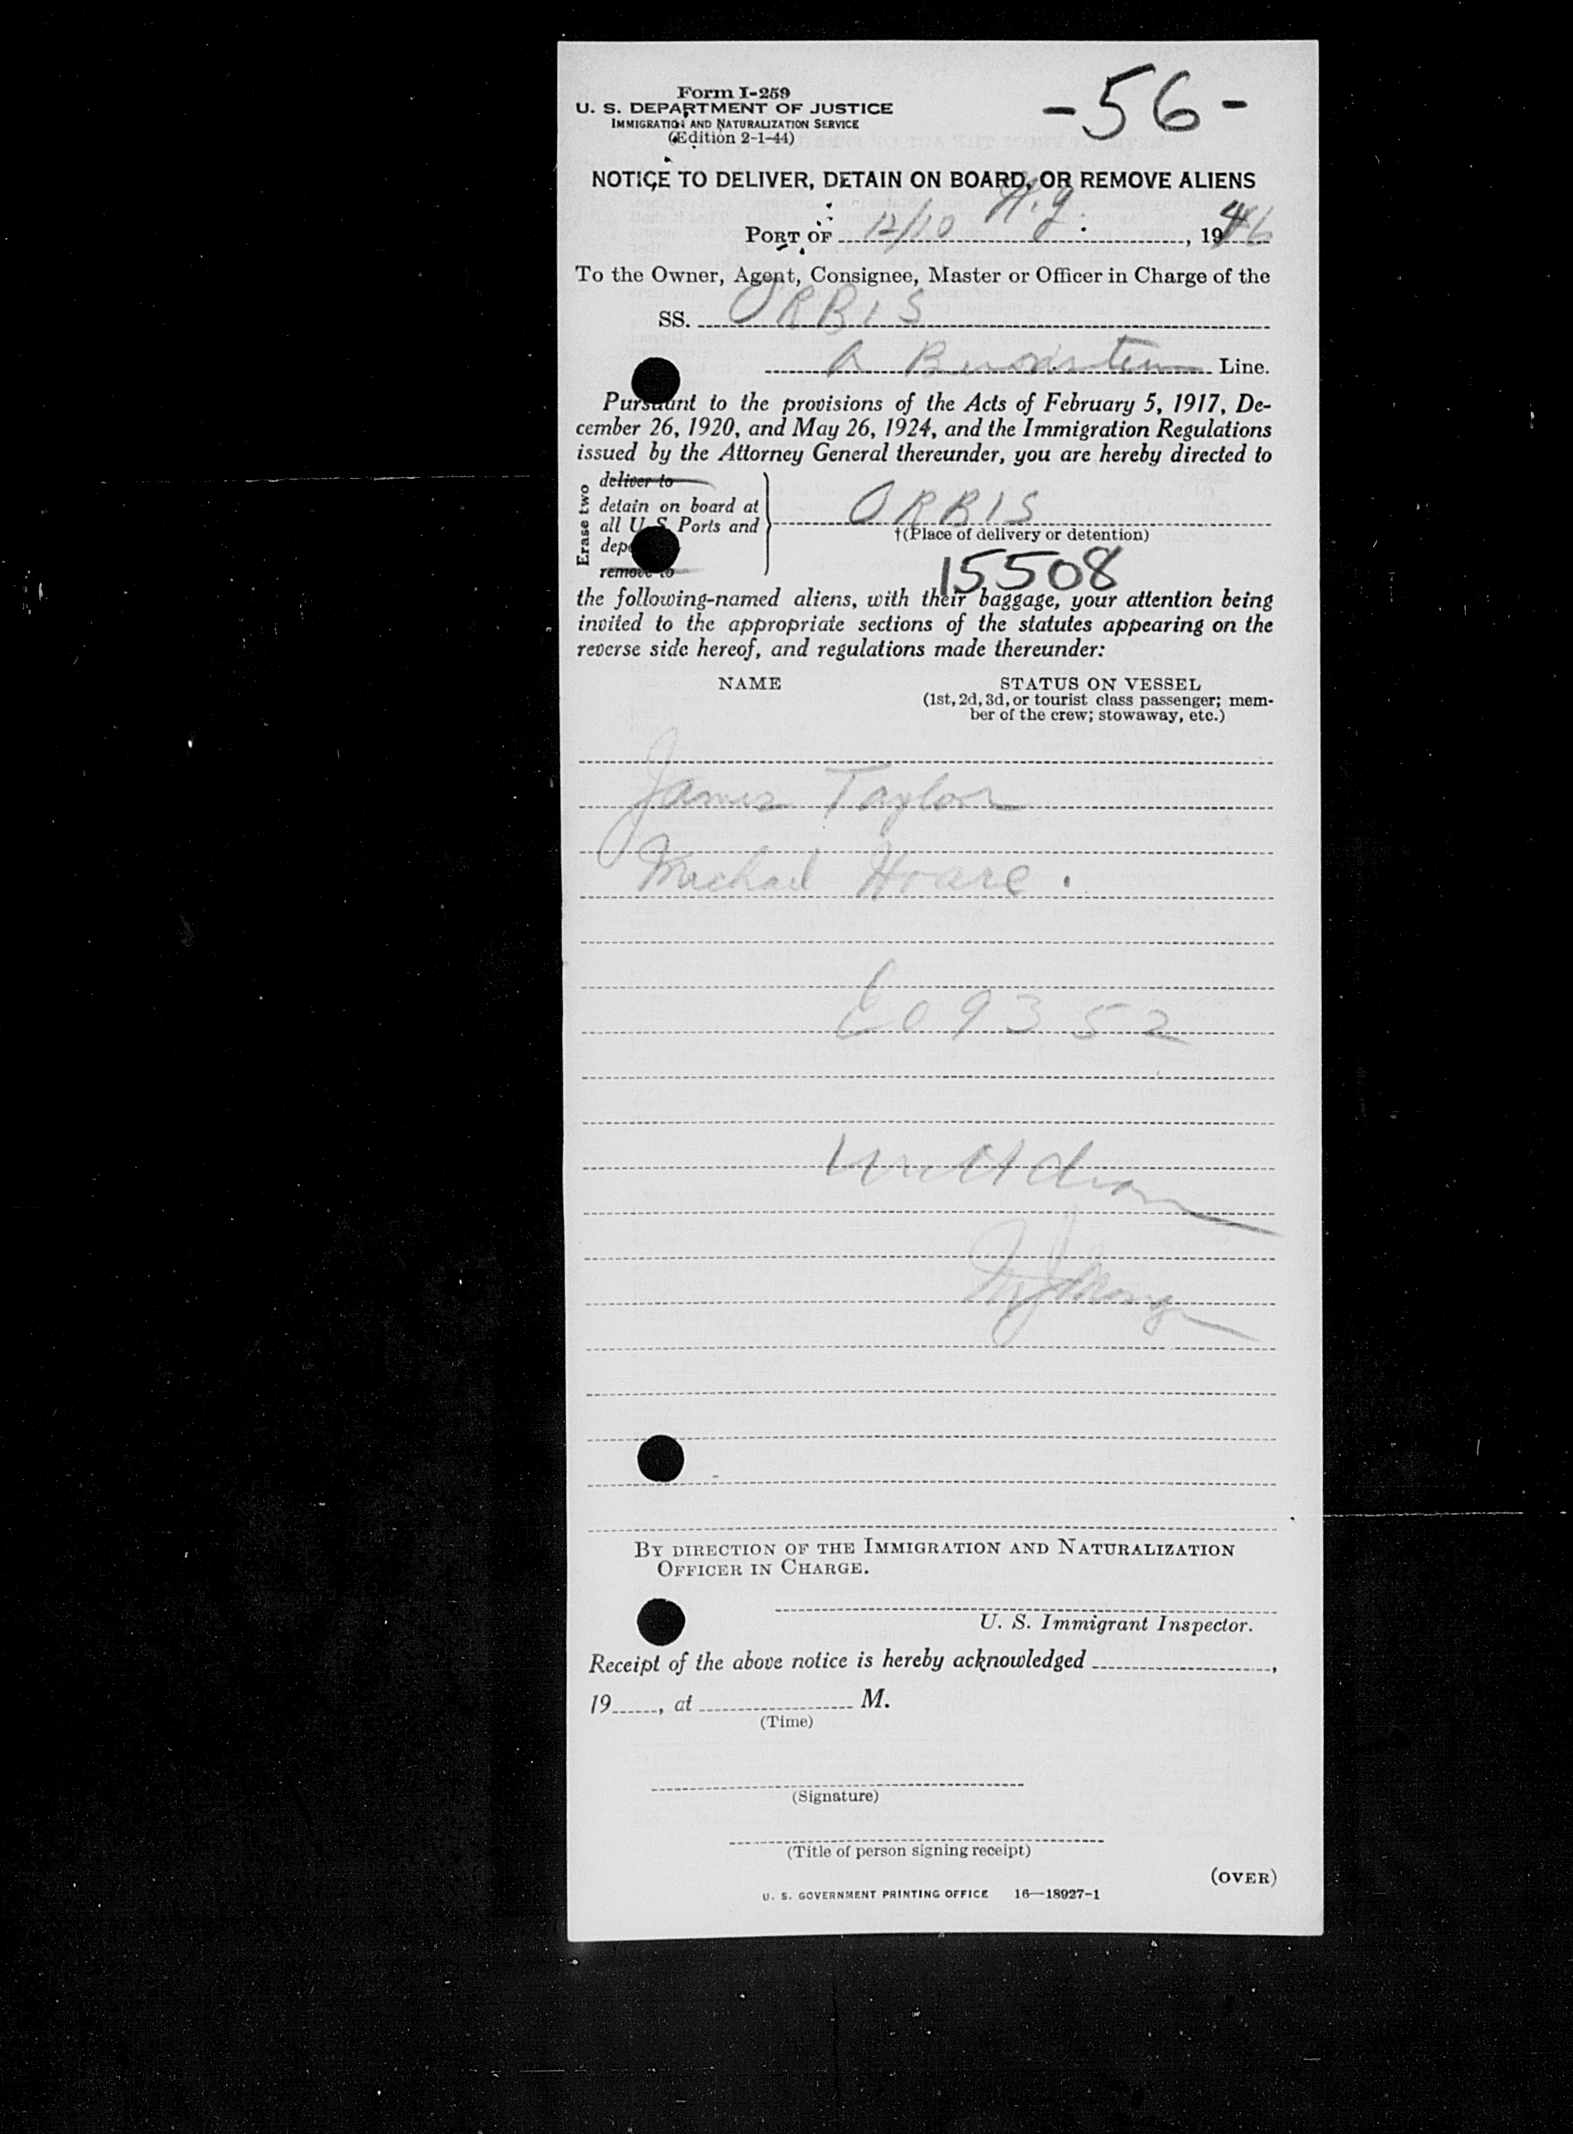 Form I-259
U. S. DEPARTMENT OF JUSTICE
IMMIGRATION AND NATURALIZATION SERVICE
(Edition 2-1-44)
-56-
NOTICE TO DELIVER, DETAIN ON BOARD, OR REMOVE ALIENS
PORT OF 12/10 N.Y. , 1946
To the Owner, Agent, Consignee, Master or Officer in Charge of the
SS. ORBIS
A Line.
Pursuant to the provisions of the Acts of February 5, 1917, De-
cember 26, 1920, and May 26, 1924, and the Immigration Regulations
issued by the Attorney General thereunder, you are hereby directed to
Erase two
deliver to
detain on board at
all U. S. Ports and
dep
remove to
ORBIS
†(Place of delivery or detention)
15508
the following-named aliens, with their baggage, your attention being
invited to the appropriate sections of the statutes appearing on the
reverse side hereof, and regulations made thereunder:
NAME
STATUS ON VESSEL
(1st, 2d, 3d, or tourist class passenger; mem-
ber of the crew; stowaway, etc.)
James Taylor
Michael Hoare.
E09352
BY DIRECTION OF THE IMMIGRATION AND NATURALIZATION
OFFICER IN CHARGE.
U. S. Immigrant Inspector.
Receipt of the above notice is hereby acknowledged ,
19 , at M.
(Time)
(Signature)
(Title of person signing receipt)
(OVER)
U. S. GOVERNMENT PRINTING OFFICE 16—18927-1